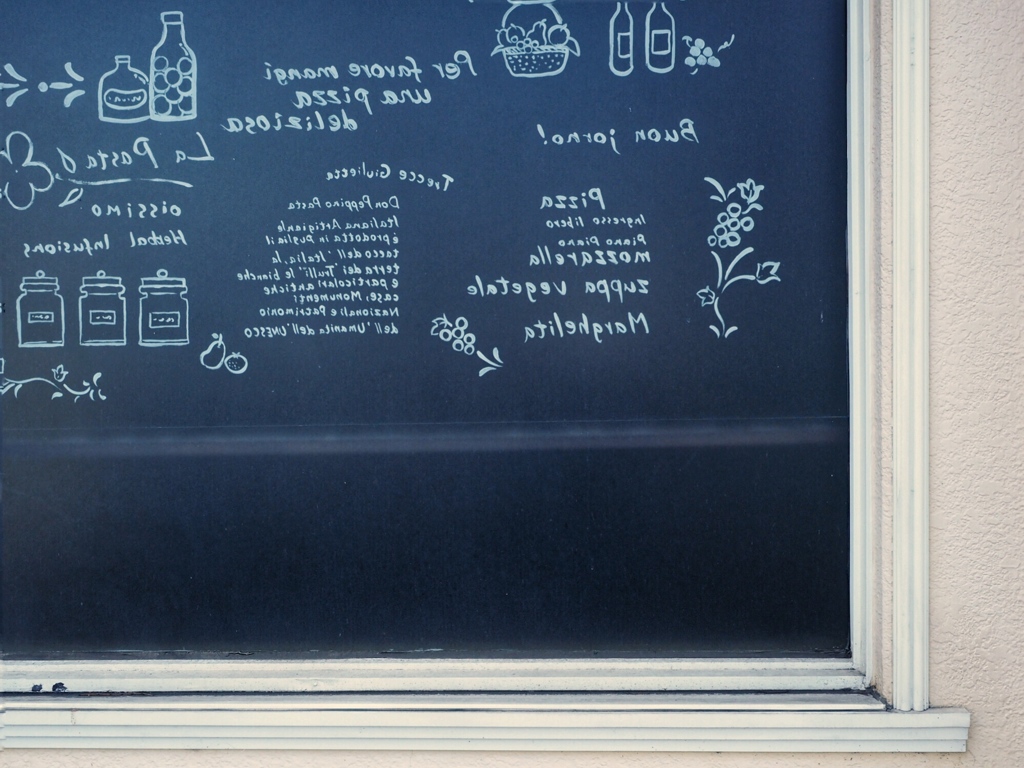 Per favore mangi
una pizza
deliziosa
Buon jorno!
La Pasta
oissimo
Herbal Infusions
Trecce Giulietta
Don Peppino Pasta
Italiana Artigianle
è prodotta in Puglia il
tacco dell' Italia, la
terra dei "Trulli" le bianche
e particolari antiche
case, Monumenti
Nazionali e Patrimonio
dell' Umanita dell' UNESCO
Pizza
Ingresso libero
Piano Piano
mozzarella
zuppa vegetale
Marghelita